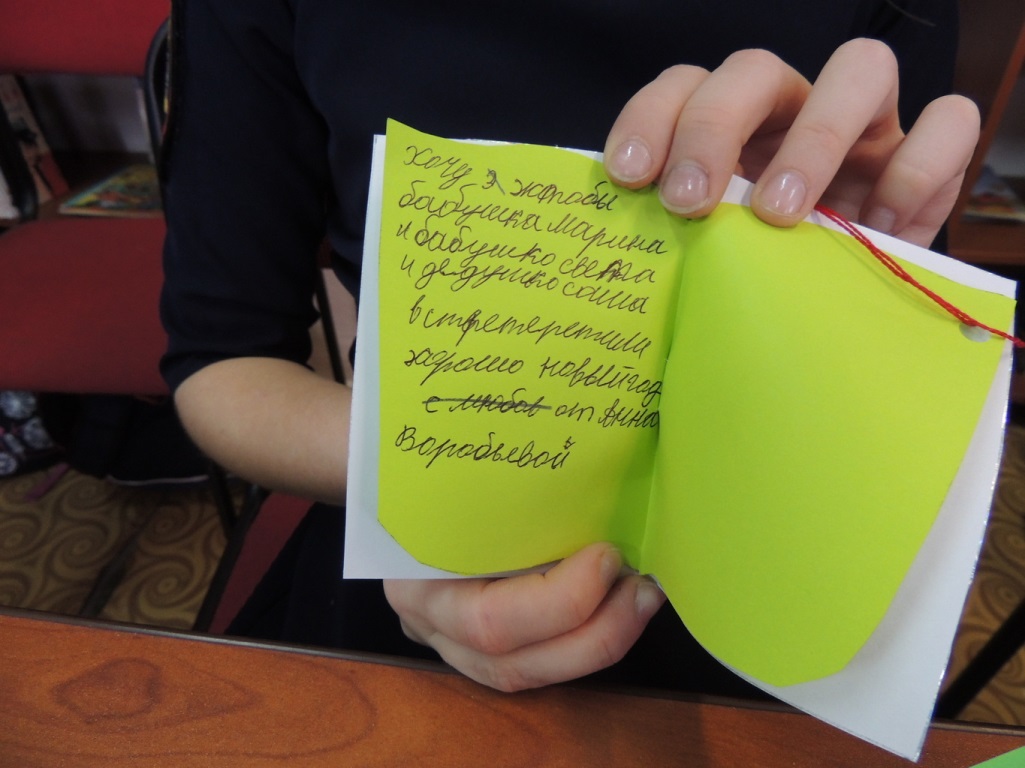 хочу я жтобы
бабушка марина
и бабушко света
и дедушкосаша
встретеретили
хорошо новыйгод
с любов от Анна
Воробьевой